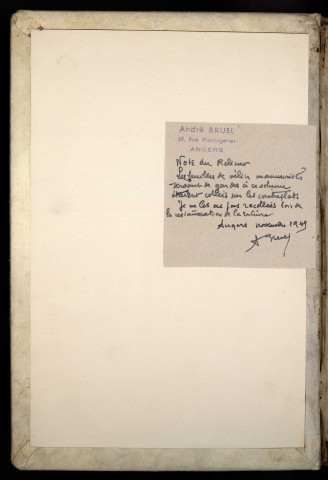 André BRUEL
39, Rue Plantagenet
ANGERS
Note du Relieur
Les feuilles de vélin manuscrites
servant de gardes à ce volume
étaient collées sur les contreplats
Je ne les ai pas recollées lors de
la restauration de la reliure
Angers novembre 1949
A Bruel